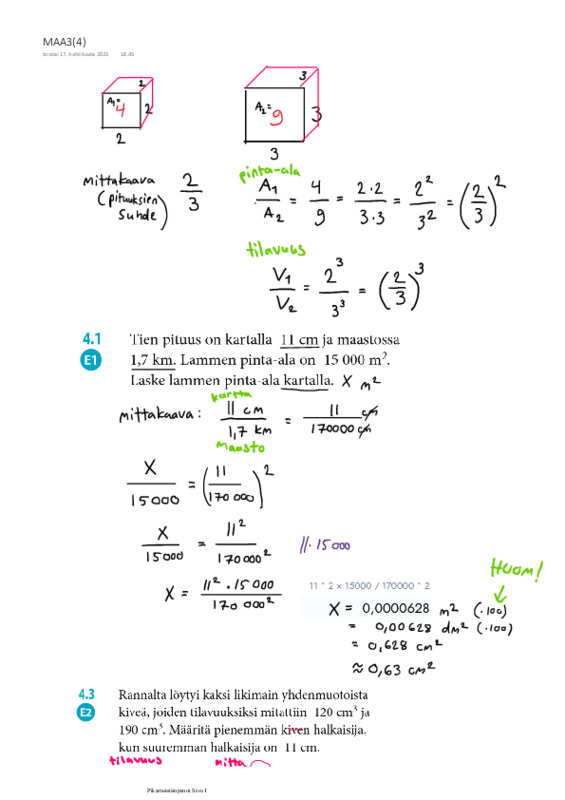 MAA3(4)
torstai 17. huhtikuuta 2025 18.45
A₁= 4 2 2
2
A₂= 9 3 3
3
Mittakaava 2/3
(pituuksien
suhde)
pinta-ala
A₁/A₂ = 4/9 = 2·2/3·3 = 2²/3² = (2/3)²
tilavuus
V₁/V₂ = 2³/3³ = (2/3)³
4.1 Tien pituus on kartalla 11 cm ja maastossa
E1 1,7 km. Lammen pinta-ala on 15 000 m².
Laske lammen pinta-ala kartalla. X m²
kartta
mittakaava: 11 cm/1,7 km = 11 cm/170000 cm
maasto
X/15000 = (11/170 000)²
X/15000 = 11²/170 000² ||· 15 000
X = 11² · 15 000/170 000²
11 ^ 2 × 15000 / 170000 ^ 2
HUOM!
X = 0,0000628 m² (·100)
= 0,00628 dm² (·100)
= 0,628 cm²
≈ 0,63 cm²
4.3 Rannalta löytyi kaksi likimain yhdenmuotoista
E2 kiveä, joiden tilavuuksiksi mitattiin 120 cm³ ja
190 cm³. Määritä pienemmän kiven halkaisija,
kun suuremman halkaisija on 11 cm.
tilavuus mitta
Pikamuistiinpanot Sivu 1